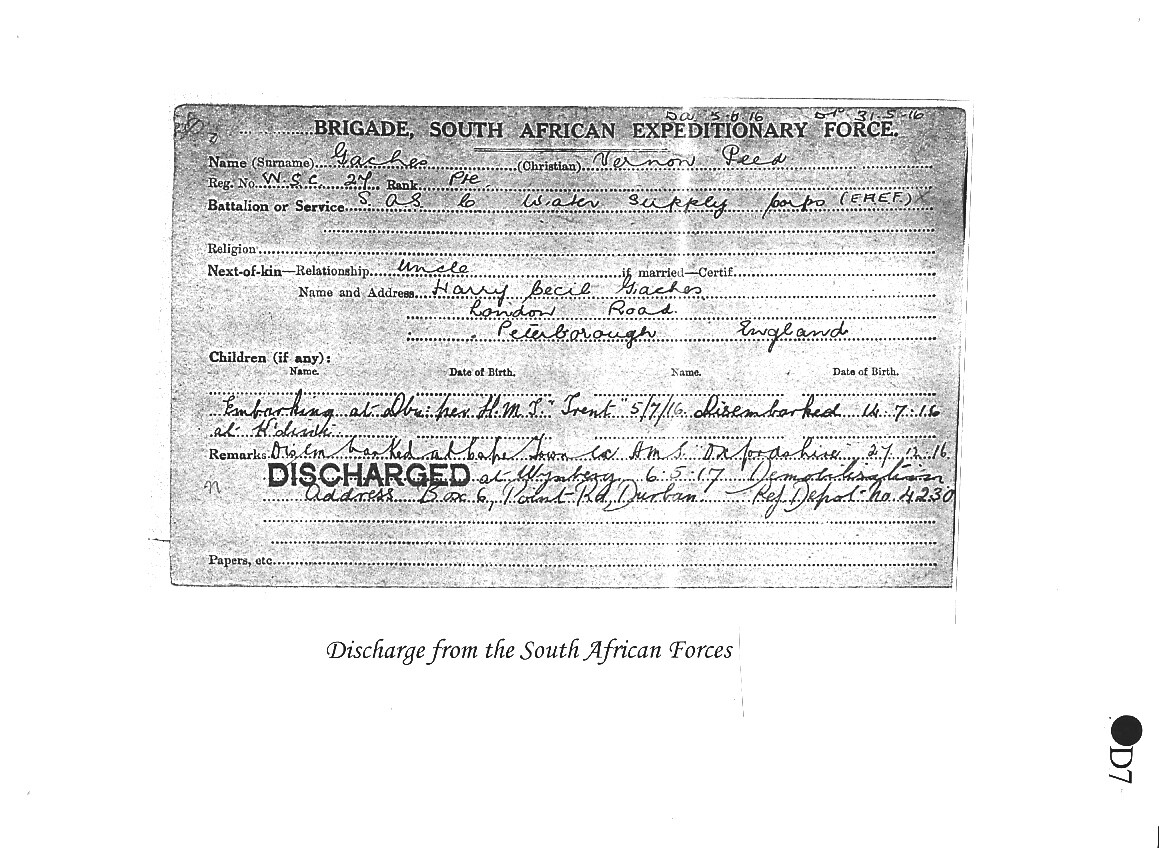 D.A. 5-6-16 31-5-16
BRIGADE, SOUTH AFRICAN EXPEDITIONARY FORCE.
Name (Surname) Gaches (Christian) Vernon Peed
Reg. No. W.S.C. 27 Rank Pte
Battalion or Service S.A.S.C Water Supply Corps (E.A.E.F.)
Religion
Next-of-kin—Relationship Uncle if married—Certif.
Name and Address Harry Cecil Gaches
London Road.
Peterborough England
Children (if any):
Name. Date of Birth. Name. Date of Birth.
Embarking at Dbn: per H.M.T. "Trent" 5/7/16. Disembarked 14.7.16
at K'dini
Remarks: Disembarked at Cape Town ex H.M.S. Oxfordshire 27.12.16.
DISCHARGED at Wynberg 6.5.17 Demobilisation
Address Box 6, Point Rd, Durban – Ref Depot no. 4230
Papers, etc.
Discharge from the South African Forces
D7